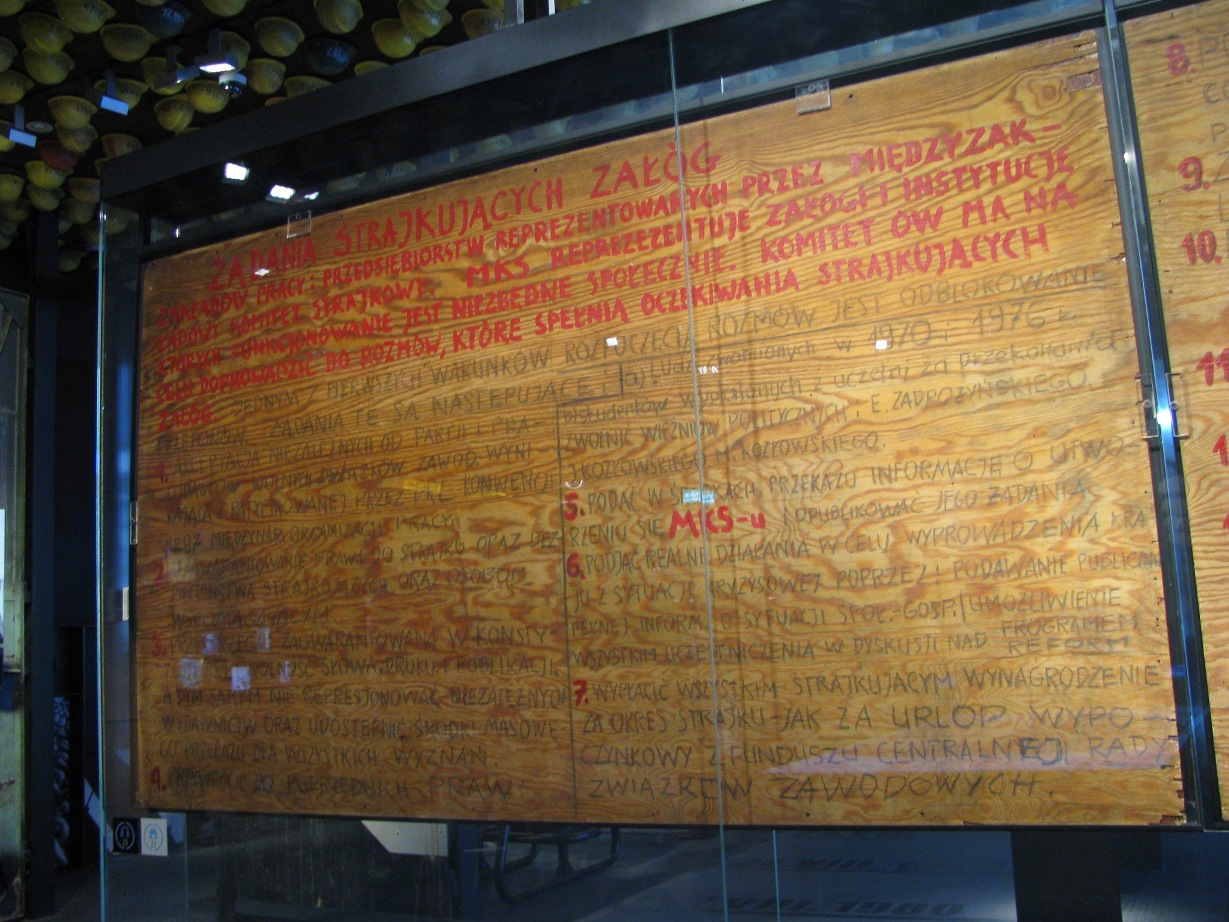 ŻĄDANIA STRAJKUJĄCYCH ZAŁÓG
ZAKŁADÓW PRACY I PRZEDSIĘBIORSTW REPREZENTOWANYCH PRZEZ MIĘDZYZAK-
ŁADOWY KOMITET STRAJKOWY. MKS REPREZEZENTUJE ZAŁOGI I INSTYTUCJE
KTÓRYCH FUNKCJONOWANIE JEST NIEZBĘDNE SPOŁECZNIE. KOMITET ÓW MA NA
CELU DOPROWADZIĆ DO ROZMÓW, KTÓRE SPEŁNIĄ OCZEKIWANIA STRAJKUJĄCYCH
ZAŁÓG.
JEDNYM Z PIERWSZYCH WARUNKÓW ROZPOCZĘCIA ROZMÓW JEST ODBLOKOWANIE
TELEFONÓW. ŻĄDANIA TE SĄ NASTĘPUJĄCE:
1. AKCEPTACJA NIEZALEŻNYCH OD PARTII I PRA-
CODAWCÓW WOLNYCH ZWIĄZKÓW ZAWOD. WYNI-
KAJĄCA Z RATYFIKOWANEJ PRZEZ PRL KONWENCJI
NR 87 MIĘDZYNAR. ORGANIZACJI PRACY.
2. ZAGWARANTOWANIE PRAWA DO STRAJKU ORAZ BEZ-
PIECZEŃSTWA STRAJKUJĄCYCH ORAZ OSOBOM
WSPOMAGAJĄCYM
3. ZAGWARANTOWANĄ W KONSTY-
WOLNOŚĆ SŁOWA, DRUKU I PUBLIKACJI,
A TYM SAMYM NIE REPRESJONOWAĆ NIEZALEŻNYCH
WYDAWNICTW ORAZ UDOSTĘPNIĆ ŚRODKI MASOWE-
GO PRZEKAZU DLA WSZYSTKICH WYZNAŃ.
4. PRZYWRÓCIĆ DO POPRZEDNICH PRAW:
a) Ludzi zwolnionych w 1970 i 1976 r.
b) studentów wydalonych z uczelni za przekonania
ZWOLNIĆ WIĘŹNIÓW POLITYCZNYCH: E. ZADROŻYŃSKIEGO
J. KOZŁOWSKIEGO M. KOZŁOWSKIEGO.
5. PODAĆ W ŚRODKACH PRZEKAZU INFORMACJĘ O UTWO-
RZENIU SIĘ MKS-u I OPUBLIKOWAĆ JEGO ŻĄDANIA
6. PODJĄĆ REALNE DZIAŁANIA W CELU WYPROWADZENIA KRA
JU Z SYTUACJI KRYZYSOWEJ POPRZEZ: PODAWANIE PUBLICZN
PEŁNEJ INFORM. O SYTUACJI SPOŁ.-GOSP. UMOŻLIWIENIE
WSZYSTKIM UCZESTNICZENIA W DYSKUSJI NAD PROGRAMEM
REFORM
7. WYPŁACIĆ WSZYSTKIM STRAJKUJĄCYM WYNAGRODZENIE
ZA OKRES STRAJKU-JAK ZA URLOP WYPO-
CZYNKOWY Z FUNDUSZU CENTRALNEJ RADY
ZWIĄZKÓW ZAWODOWYCH.
8.
9.
10.
11